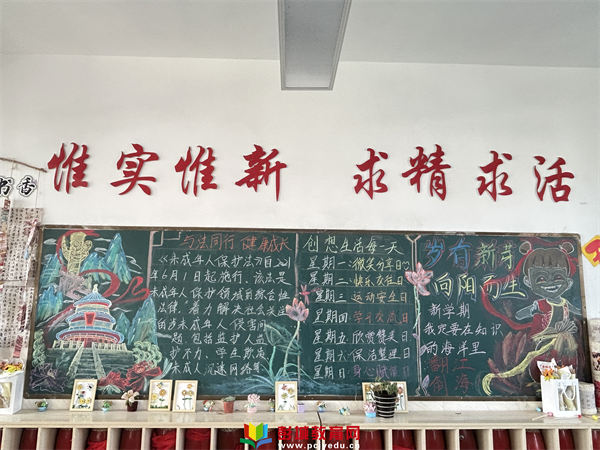 惟实惟新 求精求活
书香
与法同行 健康成长
《未成年人保护法》自2021
年6月1日起施行，该法是
未成年人保护领域的综合性
法律，着力解决社会关注
的涉未成年人侵害问
题，包括监护人监
护不力、学生欺凌
未成年人沉迷网络等
创想生活每一天
星期一：微笑分享日
星期二：快乐交往日
星期三：运动安全日
星期四：学习交流日
星期五：欣赏解决日
星期六：保洁整理日
星期日：身心
岁有新芽
向阳而生
新学期
我定要在知识
的海洋里
翻江
倒海
射雄教育网
www.pojyedu.cn